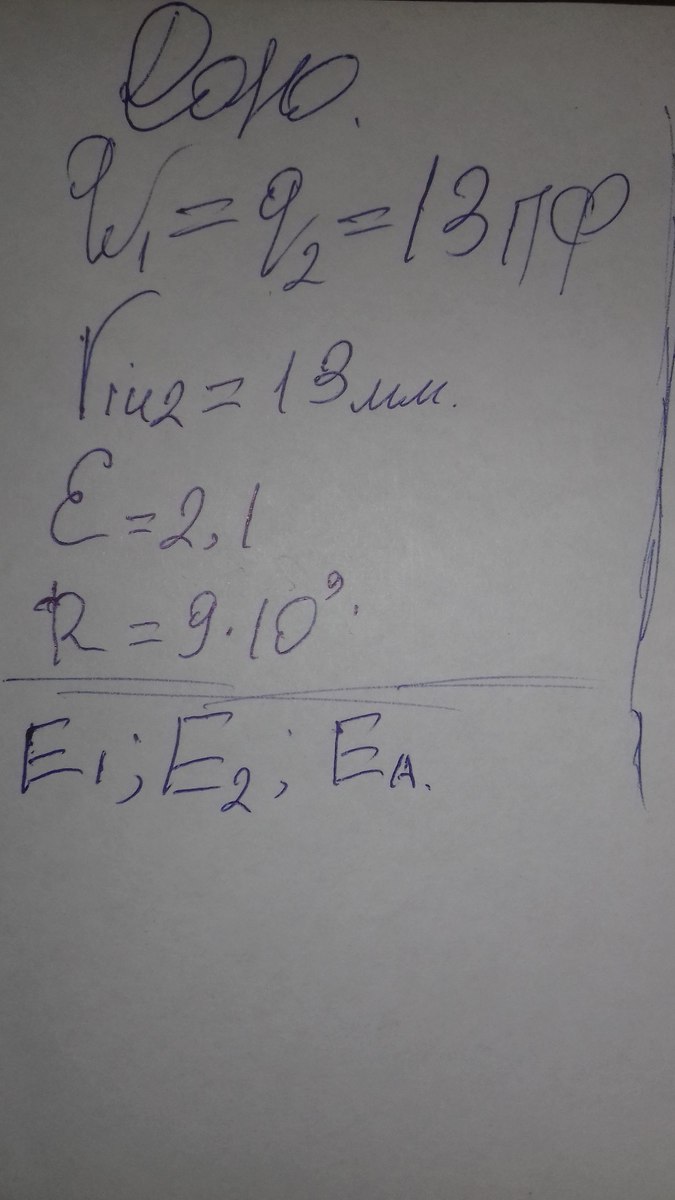 Дано.
q₁ = q₂ = 13 пФ
r₁ и ₂ = 13 мм.
ε = 2,1
R = 9·10⁹.
E₁; E₂; Eᴀ.